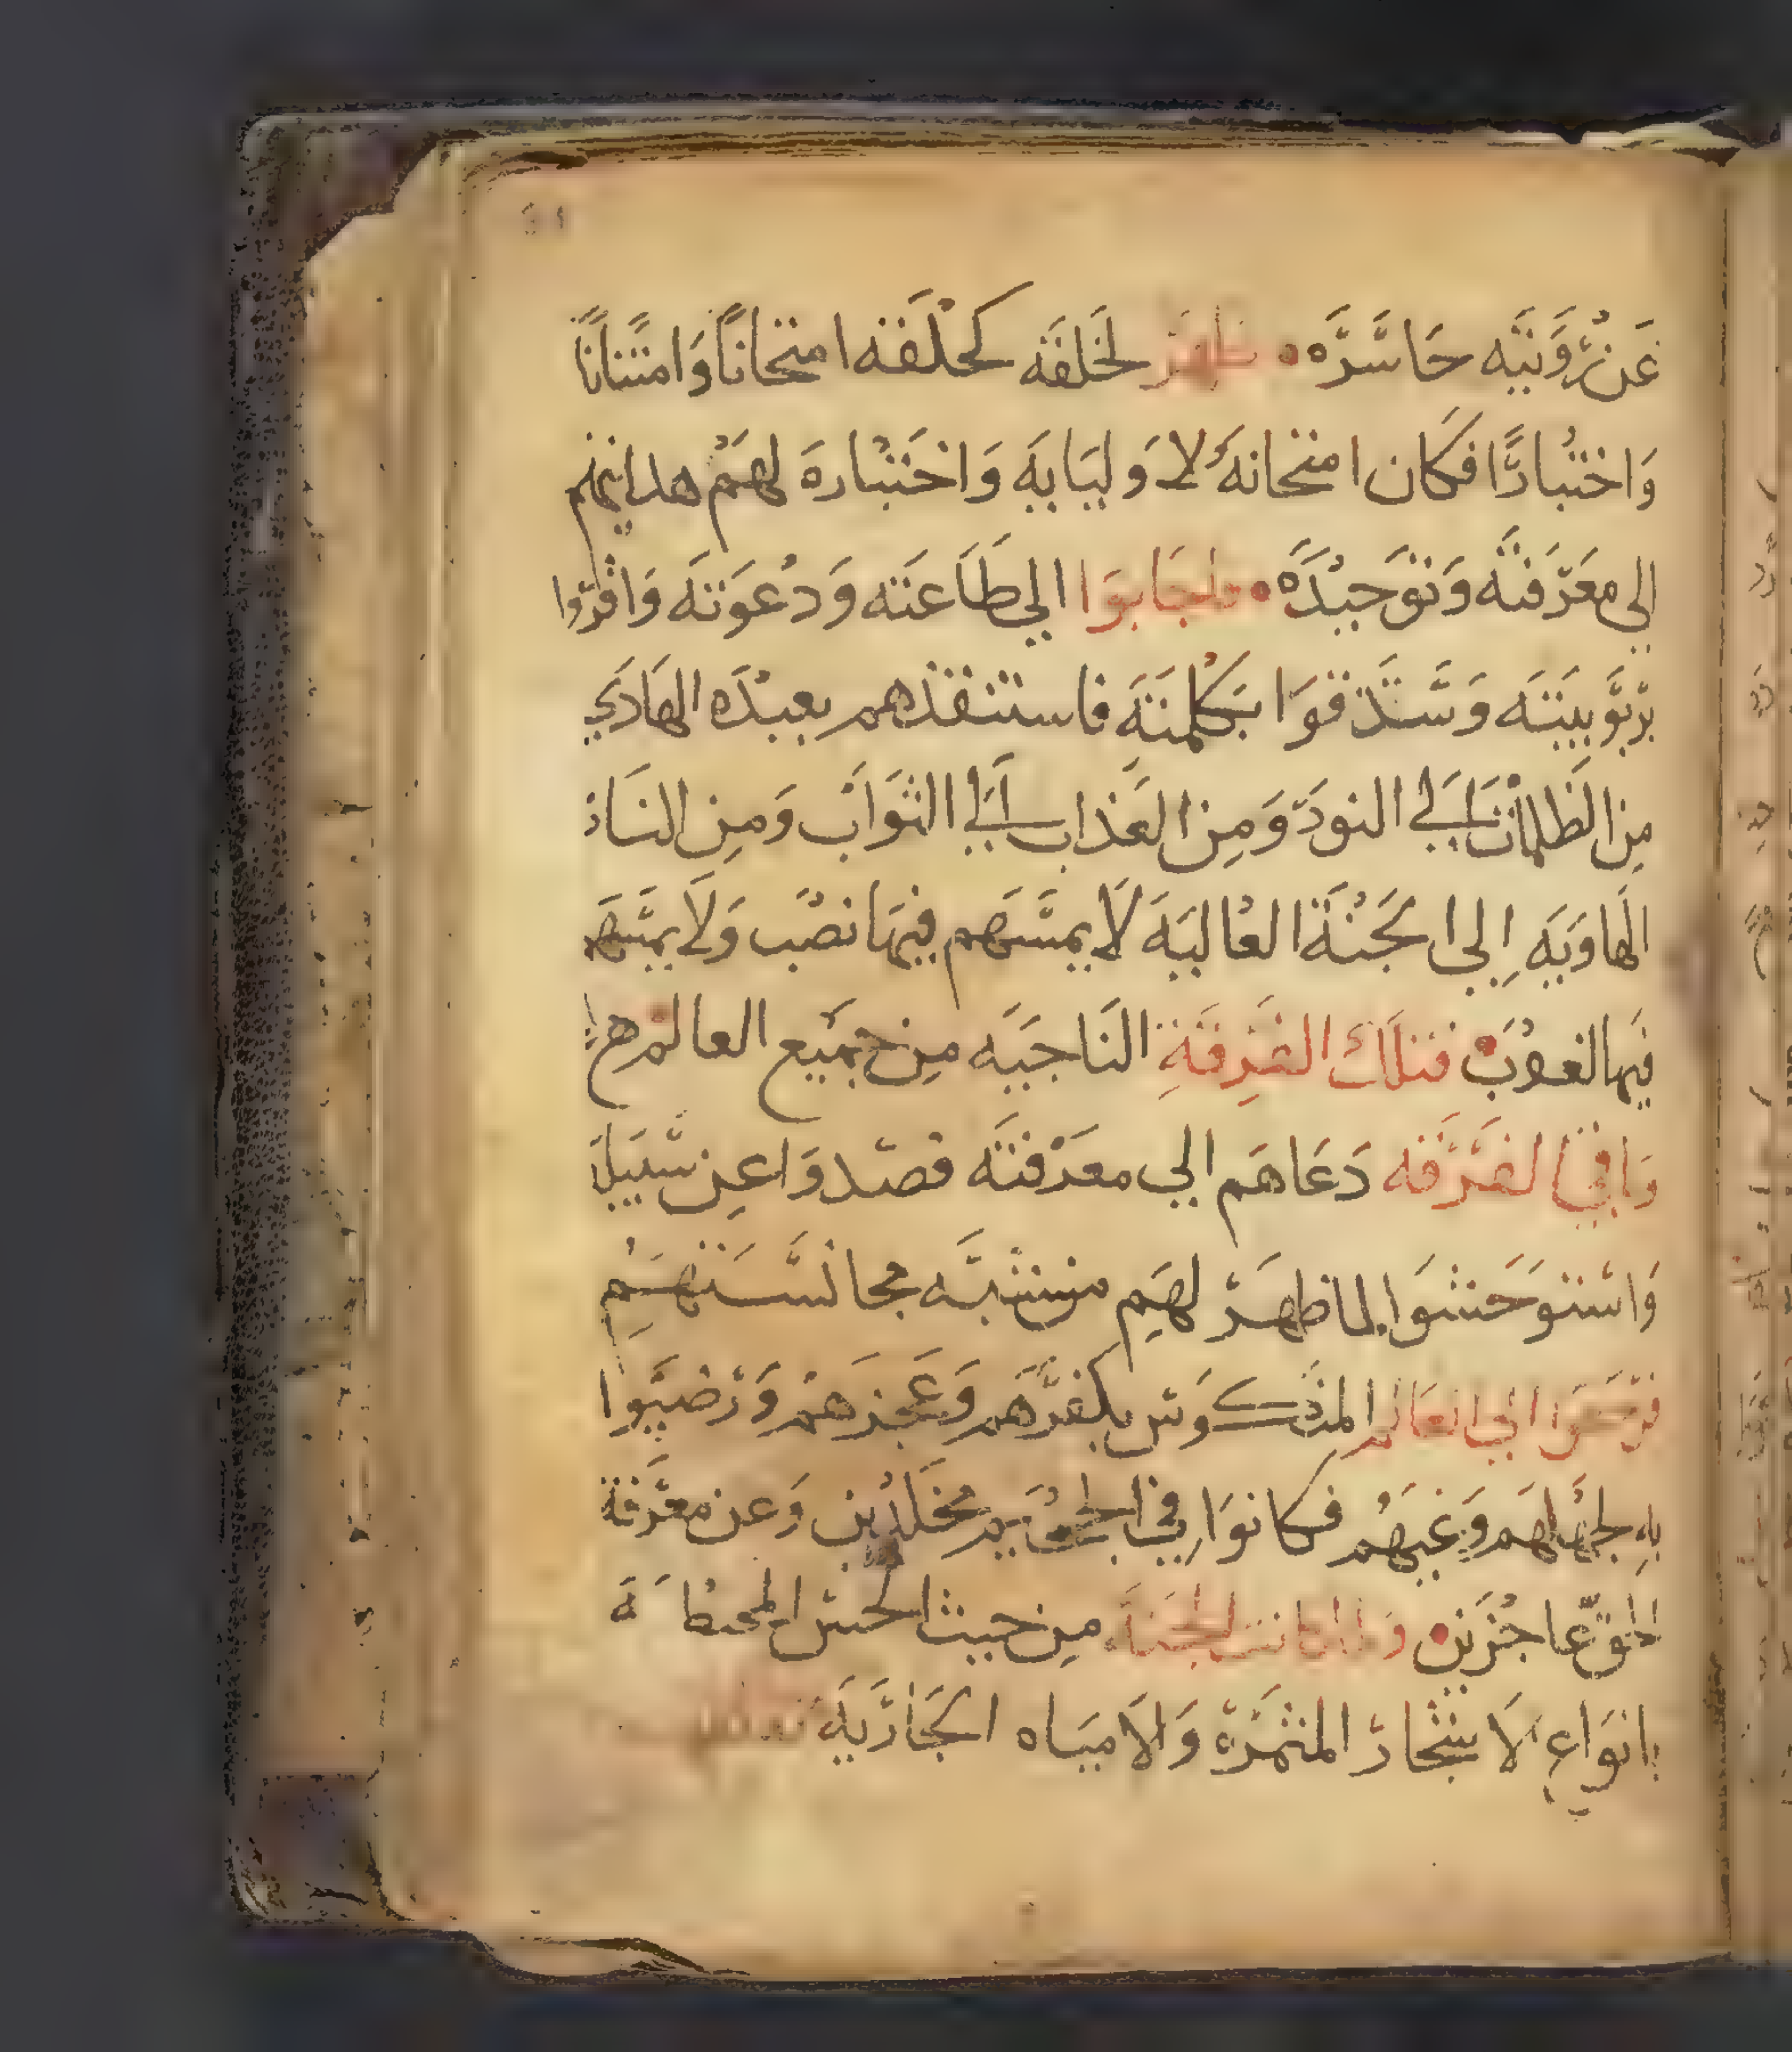 عَن رُوَيَتَه حَاسَّرَه • ظهَرَ لخَلقَه كخلَقه امتحَانًا وَامتنانًا
وَاختبارًا فكَان امتحَانهَ لاَوليَايهَ وَاختَبارهَ لهَم هدايتهم
الي معَرَفتَه وَتوَحيدَه • واجَابوَا الي طَاعَته وَدعوَتهَ وَاقرّوا
برُبوَبيَتَه وَسَّدَقوَا بَكلمتهَ فاستنقذهم بعبدَه الهَادَي
مِن الظلمات اَلي النورَ وَمِن العَذاب اَلي الثوَاب وَمِن النَار
الهَاوَيَه اِلي الجَنَة العاليَهَ لاَ يمسَّهَم فيهَا نصَب وَلاَ يمسَّهَم
فيَها لغوَب فتلَك الفَرِقَةِ النَاجيَه مِن جميَع العالم
وَباقي الفَرَقه دَعَاهَم الي معَرفتَه فصَدوَا عِن سَبيَل
وَاستوَحَشوَا لما ظهَر لهَم من شبَه مجانسَّتهَم
فرَجَعَوا الي العَالم المنكوَس بكفرَهَم وَعَجزَهم وَرَضيَوا
بهِ لجهَلهَم وَغيَهُم فكانوَا في الجحيَم مخَلدين وَعن معَرفة
الحق عَاجزَين • وَلما كانت الجنَة مِن حيث الحس
بانوَاعِ الاَشجار المثمَرَة وَالاَميَاه الجَارَيهَ